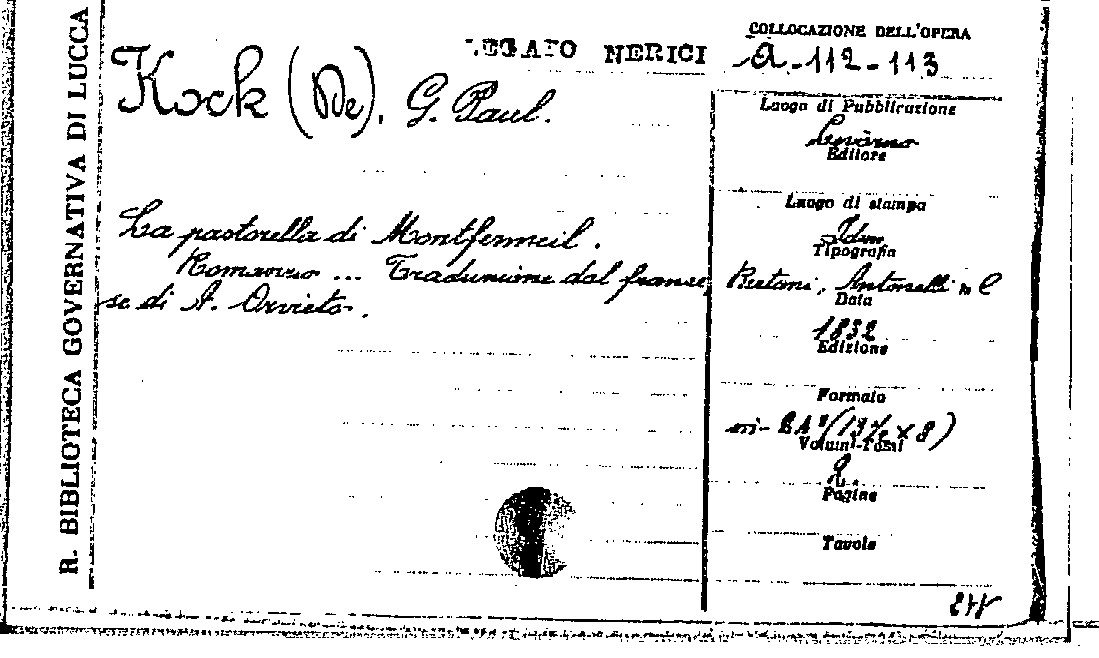 R. BIBLIOTECA GOVERNATIVA DI LUCCA
LEGATO NERICI
COLLOCAZIONE DELL'OPERA
a-112-113
Kock (De). G. Paul.
La pastorella di Montfermeil.
Romanzo ... Traduzione dal france,
se di A. Orvieto.
Luogo di Pubblicazione
Livorno
Editore
Luogo di stampa
Idem
Tipografia
Bertani, Antonelli e C
Data
1832
Edizione
Formato
in-24° (13½ x 8)
Volumi-Tomi
2.
Pagine
Tavole